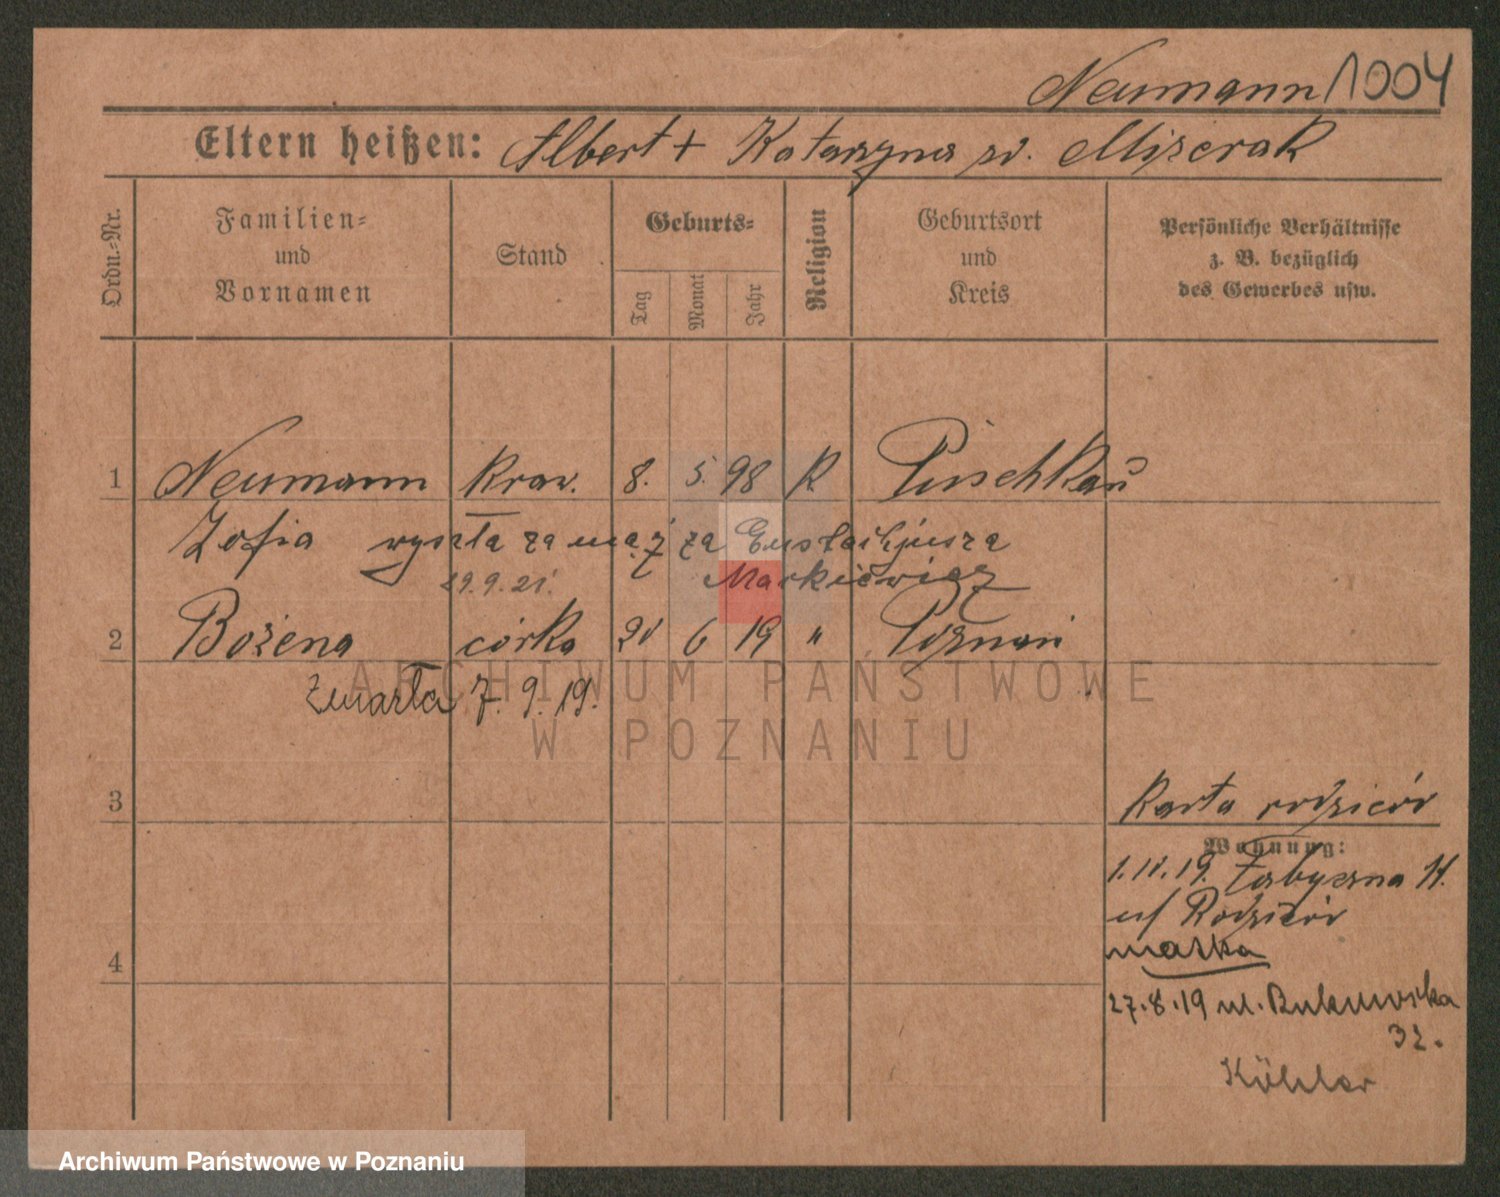 Neumann 1004
Eltern heißen: Albert + Katarzyna zd. Miserak
Ordn.-Nr.
Familien- und Vornamen
Stand
Geburts-
Tag
Monat
Jahr
Religion
Geburtsort und Kreis
Persönliche Verhältnisse
z. B. bezüglich
des Gewerbes usw.
1 Neumann kraw. 8. 5. 98 K
Zofia wyszła za mąż za Eustachjusza
29.9.21. Markiewicz
2 Bożena córka 6 19 " Poznań
zmarła 7. 9. 19.
ARCHIWUM PAŃSTWOWE
W POZNANIU
3
Karta rodziców
Wohnung:
Garbyzna
u/ Rodziców
matka
4
27.8.19 ul. Bukowska
32.
Köhler
Archiwum Państwowe w Poznaniu